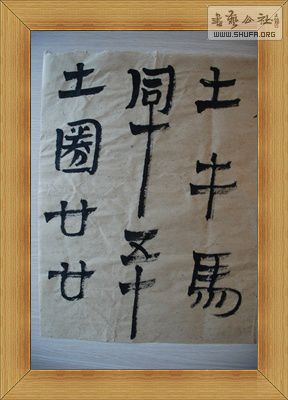 書藝公社
WWW.SHUFA.ORG
土牛馬
同十五十
土圈廿廿